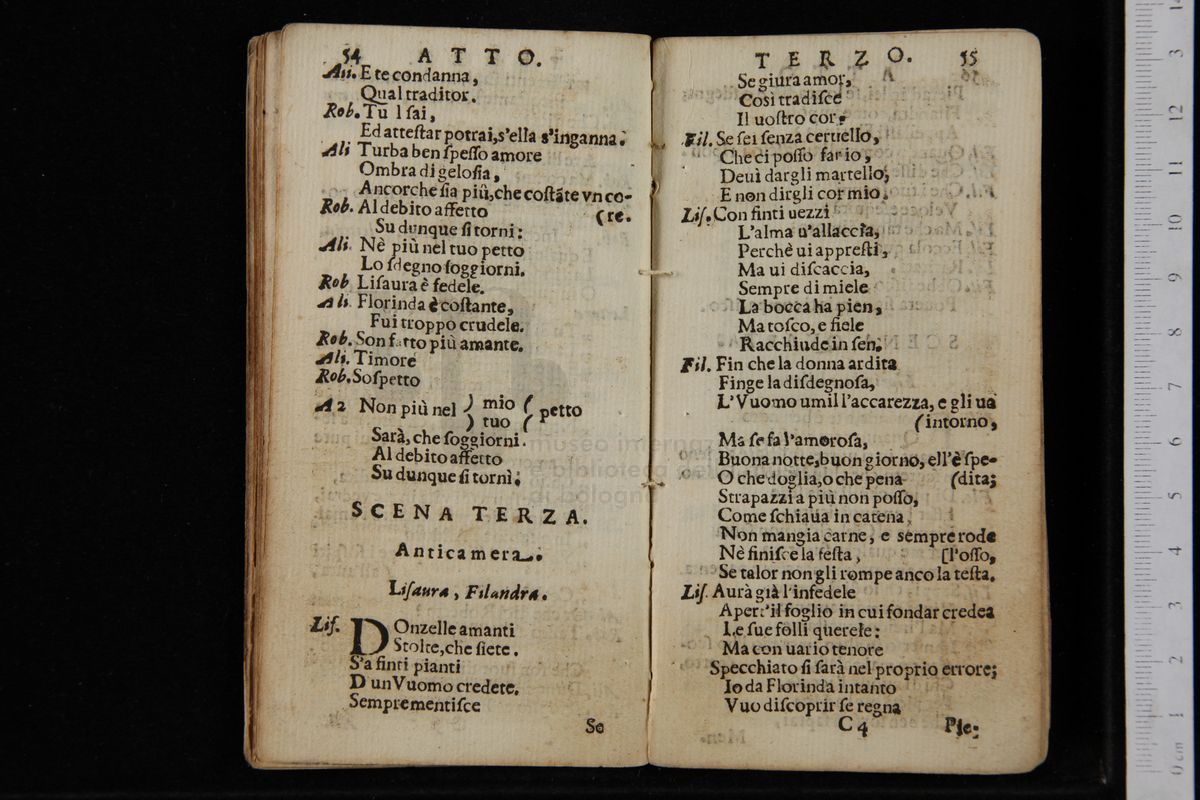 54 ATTO.
Ali. E te condanna,
Qual traditor.
Rob. Tu l ſai,
Ed atteſtar potrai, s'ella s'inganna.
Ali Turba ben ſpeſſo amore
Ombra di geloſia,
Ancorche ſia più, che coſtãte vn co-
Rob. Al debito affetto (re.
Su dunque ſi torni:
Ali. Nè più nel tuo petto
Lo ſdegno ſoggiorni.
Rob. Liſaura è fedele.
Ali. Florinda è coſtante,
Fui troppo crudele.
Rob. Son fatto più amante.
Ali. Timore
Rob. Soſpetto
A 2 Non più nel ) mio ( petto
) tuo (
Sarà, che ſoggiorni.
Al debito affetto
Su dunque ſi torni.
SCENA TERZA.
Anticamera.
Liſaura, Filandra.
Liſ. DOnzelle amanti
Stolte, che ſiete.
S'a finti pianti
D'un Vuomo credete.
Sempre mentiſce
Se
TERZO. 55
Se giura amor,
Così tradiſce
Il uoſtro cor.
Fil. Se ſei ſenza ceruello,
Che ci poſſo far io,
Deuì dargli martello,
E non dirgli cor mio.
Liſ. Con finti uezzi
L'alma u'allaccia,
Perchè ui appreſti,
Ma ui diſcaccia,
Sempre di miele
La bocca ha pien,
Ma toſco, e fiele
Racchiude in ſen.
Fil. Fin che la donna ardita
Finge la diſdegnoſa,
L'Vuomo umil l'accarezza, e gli uà
(intorno,
Ma ſe fa l'amoroſa,
Buona notte, buon giorno, ell'è ſpe-
O che doglia, o che pena (dita;
Strapazzi a più non poſſo,
Come ſchiaua in catena,
Non mangia carne, e sempre rode
Nè finiſce la feſta, [l'oſſo,
Se talor non gli rompe anco la teſta.
Liſ. Aurà già l'infedele
Apert'il foglio in cui fondar credea
Le ſue folli querele:
Ma con uario tenore
Specchiato ſi ſarà nel proprio errore;
Io da Florinda intanto
Vuo diſcoprir ſe regna
C 4 Pie-